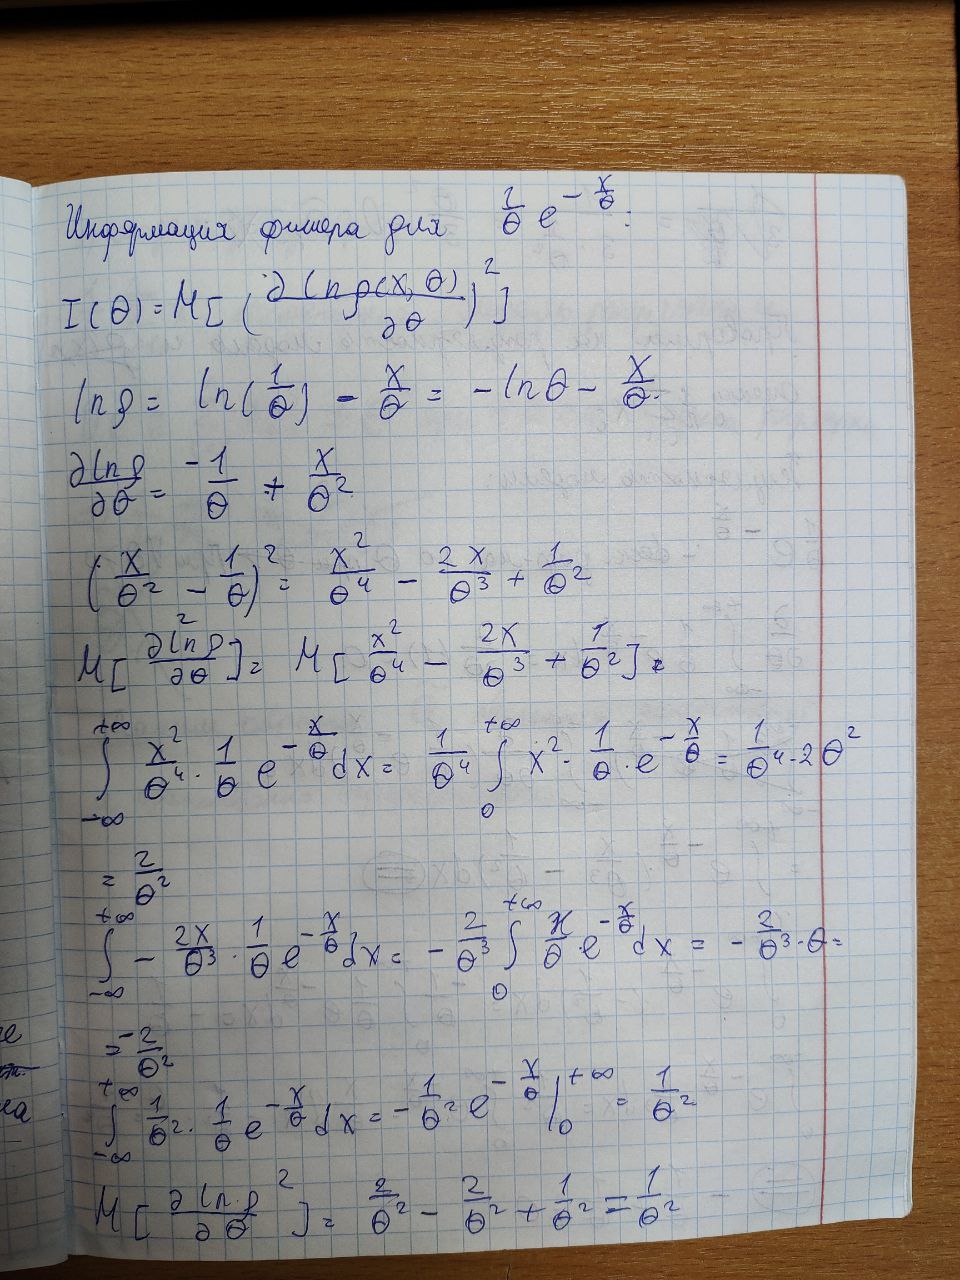 Информация фишера для 1/θ e^{-x/θ}:
I(θ) = M[(∂ ln ρ(x, θ)/∂θ)^2]
ln ρ = ln(1/θ) - x/θ = -ln θ - x/θ
∂ln ρ/∂θ = -1/θ + x/θ^2
(x/θ^2 - 1/θ)^2 = x^2/θ^4 - 2x/θ^3 + 1/θ^2
M[∂ln ρ/∂θ]^2 = M[x^2/θ^4 - 2x/θ^3 + 1/θ^2] =
∫_{-∞}^{+∞} x^2/θ^4 · 1/θ e^{-x/θ} dx = 1/θ^4 ∫_0^{+∞} x^2 · 1/θ · e^{-x/θ} = 1/θ^4 · 2θ^2
= 2/θ^2
∫_{-∞}^{+∞} - 2x/θ^3 · 1/θ e^{-x/θ} dx = - 2/θ^3 ∫_0^{+∞} x/θ · e^{-x/θ} dx = - 2/θ^3 · θ =
= -2/θ^2
∫_{-∞}^{+∞} 1/θ^2 · 1/θ e^{-x/θ} dx = - 1/θ^2 e^{-x/θ} |_0^{+∞} = 1/θ^2
M[∂ ln ρ/∂θ ^2] = 2/θ^2 - 2/θ^2 + 1/θ^2 = 1/θ^2